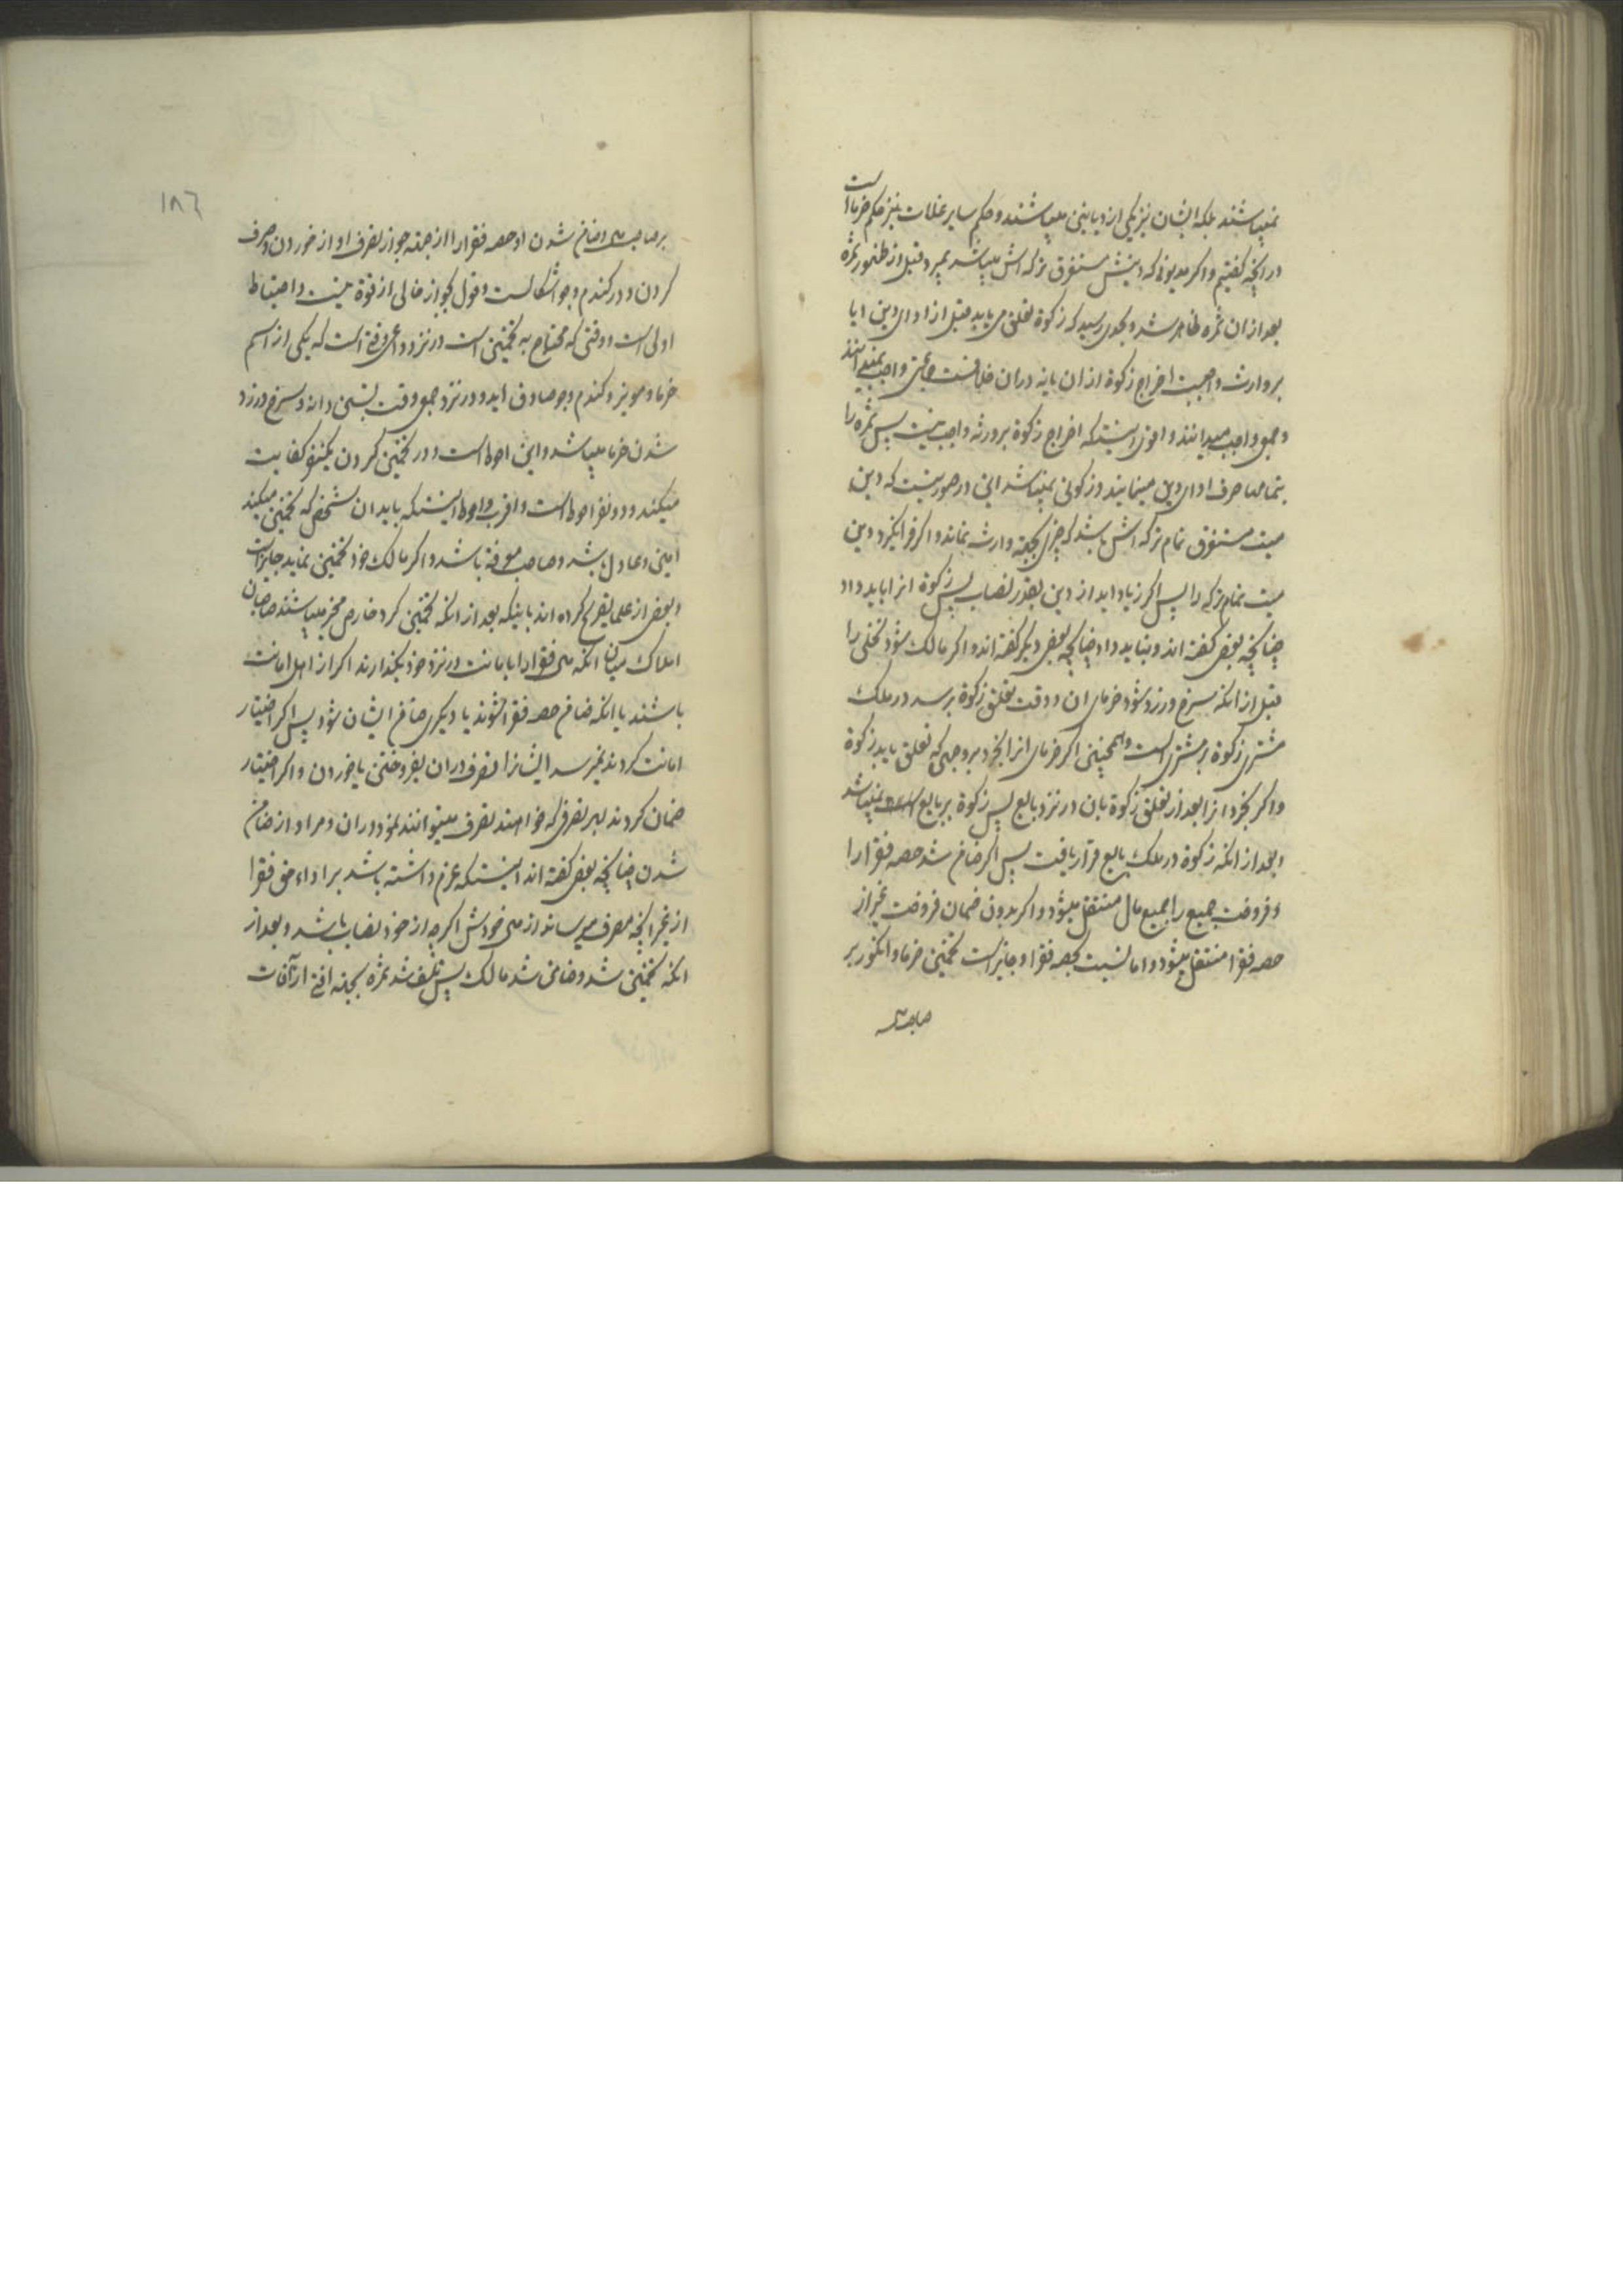 نمیباشند بلکه ایشان نیز یکی از دیانین میباشند و حکم سایر غلات نیز حکم خرما است
در آنچه گفتیم و اکر مدیونی که دینش مستغرق ترکه اش میباشد بمیرد قبل از ظهور ثمره
بعد از ان ثمره ظاهر شد و بحدی رسید که زکوة تعلق می یابد قبل از ادای دین ایا
بر وارث واجبست اخراج زکوة از ان یا نه در ان خلافست جماعتی واجب نمیدانند
و جمعی واجب میدانند و اقوی اینستکه اخراج زکوة بر ورثه واجب نیست پس ثمره را
بتمامها صرف ادای دین مینمایند و زکوتی نمیباشد این در صورتیست که دین
میت مستغرق تمام ترکه اش باشد که چیزی بجهة وارث نماند و اکر فرا نگیرد دین
میت تمام ترکه را پس اکر زیاد اید از دین بقدر نصاب پس زکوة انرا باید داد
چنانچه بعضی گفته اند و نباید داد چنانچه بعضی دیکر گفته اند و اکر مالک شود نخلی را
قبل از انکه سرخ و زرد شود خرمای ان و وقت تعلق زکوة برسد در ملک
مشتری زکوة بر مشتری است و همچنین اکر خرمای انرا بخرد بر وجهی که تعلق یابد زکوة
و اکر بخرد انرا بعد از تعلق زکوة بان در نزد بایع پس زکوة بر بایع میباشد
و بعد از انکه زکوة در ملک بایع قرار یافت پس اکر ضامن شد حصه فقرا را
و فروخت جمیع را جمیع مال منتقل میشود و اکر بدون ضمان فروخت غیر از
حصه فقرا منتقل میشود و اما نسبت بحصه فقرا و جایز است تخمین خرما و انکور بر
صاحبش
١٨٦
بر صاحبش و ضامن شدن او حصه فقرا را از جهة جواز تصرف او از خوردن و صرف
کردن و در کندم و جو اشکالست و قول بجواز خالی از قوة نیست و احتیاط
اولی است و وقتی که محتاج به تخمین است در نزد جماعتی وقتی است که یکی از اسم
خرما و مویز و کندم و جو صادق اید و در نزد جمعی وقت بستن دانه و سرخ و زرد
شدن خرما میباشد و این احوط است و در تخمین کردن یکنفر کفایت
میکند و دو نفر احوط است و اقرب و احوط اینستکه باید ان شخص که تخمین میکند
امین و عادل باشد و صاحب معرفة باشد و اکر مالک خود تخمین نماید جایز است
و بعضی از علما تصریح کرده اند باینکه بعد از انکه تخمین کرد خارص مخیر میباشند صاحبان
املاک میان انکه حق فقرا را بامانت در نزد خود بکذارند اکر از اهل امانت
باشند یا انکه ضامن حصه فقرا شوند یا دیکری ضامن ایشان شود پس اکر اختیار
امانت کردند نمیرسد ایشانرا تصرف در ان بفروختن یا خوردن و اکر اختیار
ضمان کردند بهر تصرفی که خواهند تصرف میتوانند نمود در ان و مراد از ضامن
شدن چنانچه بعضی گفته اند اینستکه عزم داشته باشد بر اداء حق فقرا
از غیر انچه بمصرف میرساند از حق خودش اکر چه از خود نصاب باشد و بعد از
انکه تخمین شد و ضامن شد مالک پس تلف شد ثمره بجهة افتی از آفات